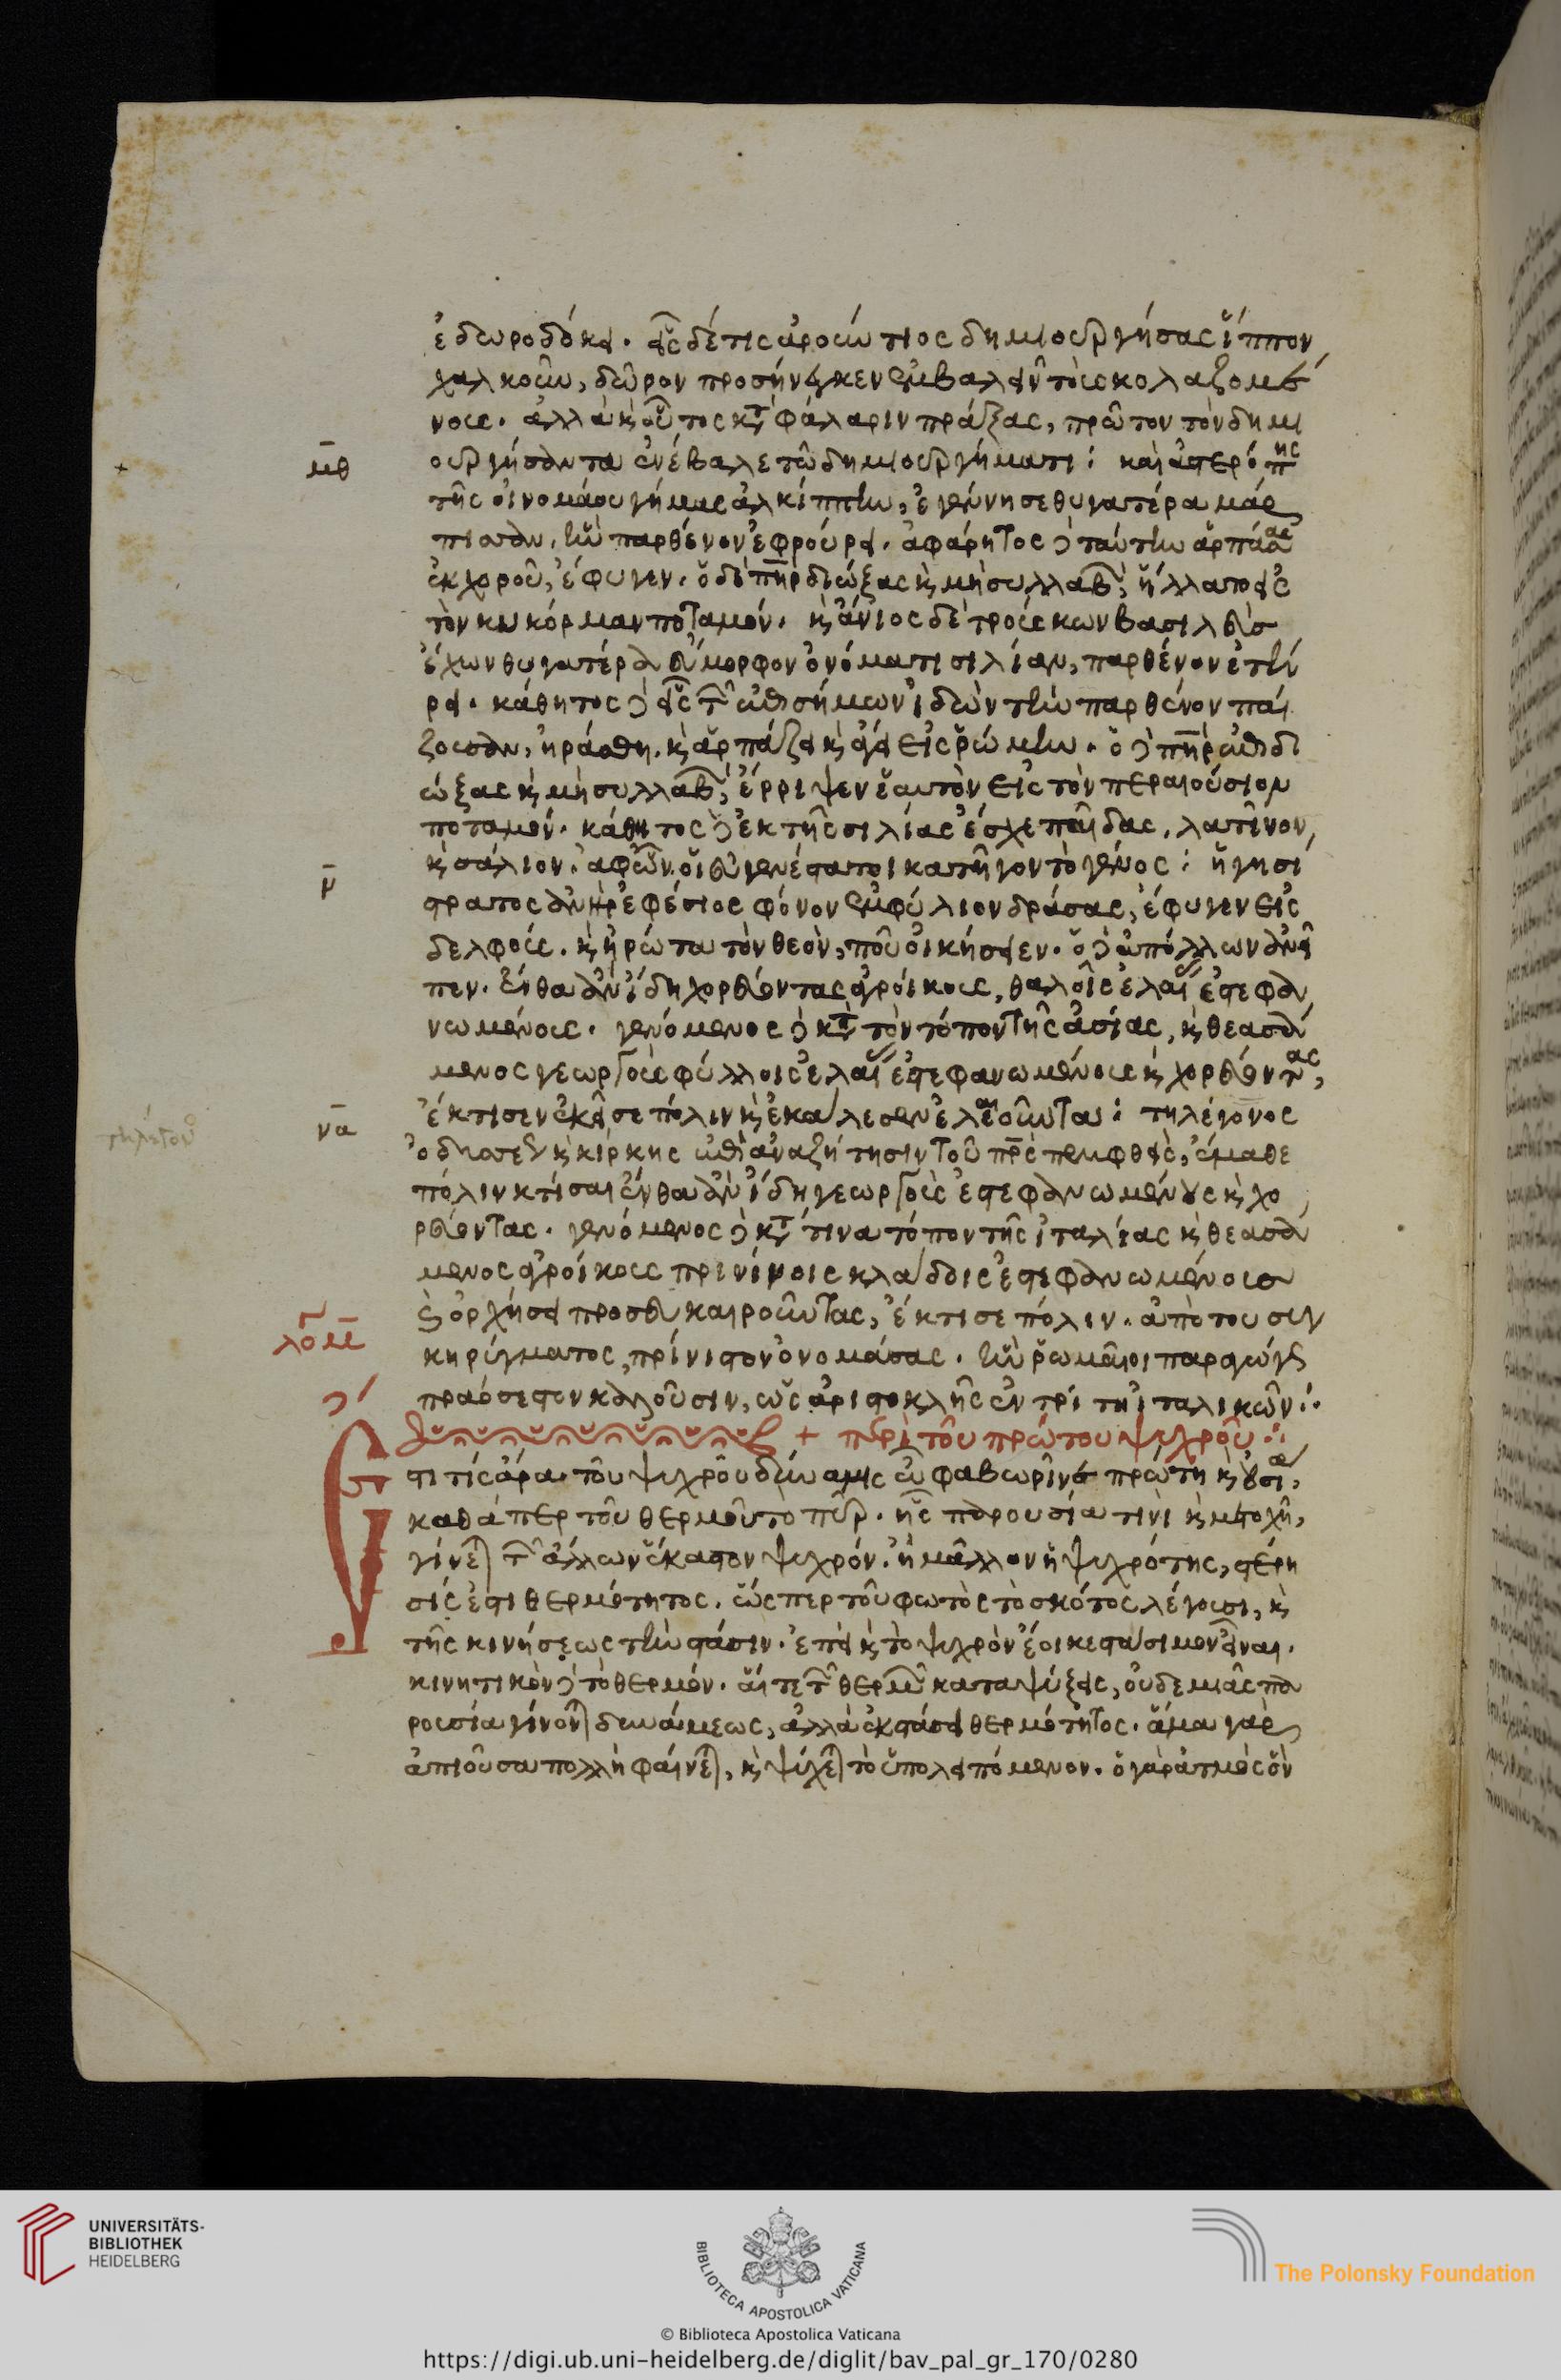 ἐδωροδόκει. εἷς δέ τις ἀρούντιος δημιουργήσας ἵππον
χαλκοῦν, δῶρον προσήνεγκεν ἐμβαλεῖν τοὺς κολαζομέ
νους. ἀλλὰ κ̀ οὗτος κτ̀ φάλαριν πράξας, πρῶτον τὸν δημι
μθ̄ ουργήσαντα ἐνέβαλε τῶ δημιουργήματι: καὶ ἀστερόπης
τῆς οἰνομάου γήμας ἀλκίππην, ἐγέννησε θυγατέρα μάρ
πισσαν, ἣν παρθένον ἐφρούρει. ἀφάρητος δὲ ταύτην ἁρπάσας
ἐκ χοροῦ, ἔφυγεν. ὁ δὲ πηρ διώξας κ̀ μὴ συλλαβ, ἥλλατο εἰς
τὸν κυκόρμαν ποταμόν. κ̀ ἄνιος δὲ τρούσκων βασιλεὺς
ἔχων θυγατέρα εὔμορφον ὀνόματι σιλίαν, παρθένον ἐτή
ρει. κάθητος δὲ εἷς τῶν ἐπισήμων ἰδὼν τὴν παρθένον παί
ζουσαν, ἠράσθη. κ̀ ἁρπάζει κ̀ ἄγει εἰς ῥώμην. ὁ δὲ πηρ ἐπιδι
ώξας κ̀ μὴ συλλαβ, ἔρριψεν ἑαυτὸν εἰς τὸν περαιούσιον
ποταμόν. κάθητος δὲ ἐκ τῆς σιλίας ἔσχε παῖδας, λατῖνον,
κ̀ σάλιον. ἀφ' ὧν οἱ εὐγενέστατοι κατῆγον τὸ γένος: ἡγησί
ν̄ στρατος ἀνὴρ ἐφέσιος φόνον ἐμφύλιον δράσας, ἔφυγεν εἰς
δελφούς. κ̀ ἠρώτα τὸν θεὸν, ποῦ οἰκήσειεν. ὁ δὲ ἀπόλλων ἀνεῖ
πεν. ἔνθα ἂν ἴδη χορεύοντας ἀγροίκους, θαλοῖς ἐλαίας ἐστεφα
νωμένους. γενόμενος δὲ κτ̀ τὸν τόπον τῆς ἀσίας, κ̀ θεασά
μενος γεωργοὺς φύλλοις ἐλαίας ἐστεφανωμένους κ̀ χορεύοντας,
νᾱ ἔκτισεν ἐκεῖσε πόλιν κ̀ ἐκάλεσεν ἐλαιοῦντα: τηλέγονος
ὁ ὀδυσσέως κ̀ κίρκης ἐπὶ ἀναζήτησιν τοῦ πρς πεμφθεὶς, ἔμαθε
πόλιν κτίσαι ἔνθα ἂν ἴδη γεωργοὺς ἐστεφανωμένους κ̀ χο
ρεύοντας. γενόμενος δὲ κτ̀ τινα τόπον τῆς ἰταλίας κ̀ θεασά
μενος ἀγροίκους πρινίνοις κλάδοις ἐστεφανωμένους
κ̀ ὀρχήσει προσευκαιροῦντας, ἔκτισε πόλιν. ἀπὸ του συγ
κηρύγματος, πρίνιστον ὀνομάσας. ἣν ῥωμαῖοι παραγώγως
πραόσεστον καλοῦσιν, ὡς ἀριστοκλῆς ἐν τρίτη ἰταλικῶν:
+ περὶ τοῦ πρώτου ψυχροῦ:
Ἔστι τίς ἄρα τοῦ ψυχροῦ δύναμις ὦ φαβωρῖνε πρώτη κ̀ οὐσία,
καθάπερ τοῦ θερμοῦ τὸ πῦρ. ἧς παρουσία τινὶ κ̀ μετοχῆ,
γίνεται τῶν ἄλλων ἕκαστον ψυχρόν. ἢ μᾶλλον ἡ ψυχρότης, στέρη
σίς ἐστι θερμότητος. ὥσπερ τοῦ φωτὸς τὸ σκότος λέγουσι, κ̀
τῆς κινήσεως τὴν στάσιν. ἐπεὶ κ̀ τὸ ψυχρὸν ἔοικε στάσιμον εἶναι.
κινητικὸν δὲ τὸ θερμόν. αἵ τε τῶν θερμῶν καταψύξεις, οὐδεμιᾶς πα
ρουσία γίνονται δυνάμεως, ἀλλὰ ἐκστάσει θερμότητος. ἅμα γὰρ
ἀπιοῦσα πολλὴ φαίνεται, κ̀ ψύχεται τὸ ὑπολειπόμενον. ὁ γὰρ ἀτμὸς ὃν
UNIVERSITÄTS-
BIBLIOTHEK
HEIDELBERG
BIBLIOTECA APOSTOLICA VATICANA
The Polonsky Foundation
© Biblioteca Apostolica Vaticana
https://digi.ub.uni-heidelberg.de/diglit/bav_pal_gr_170/0280